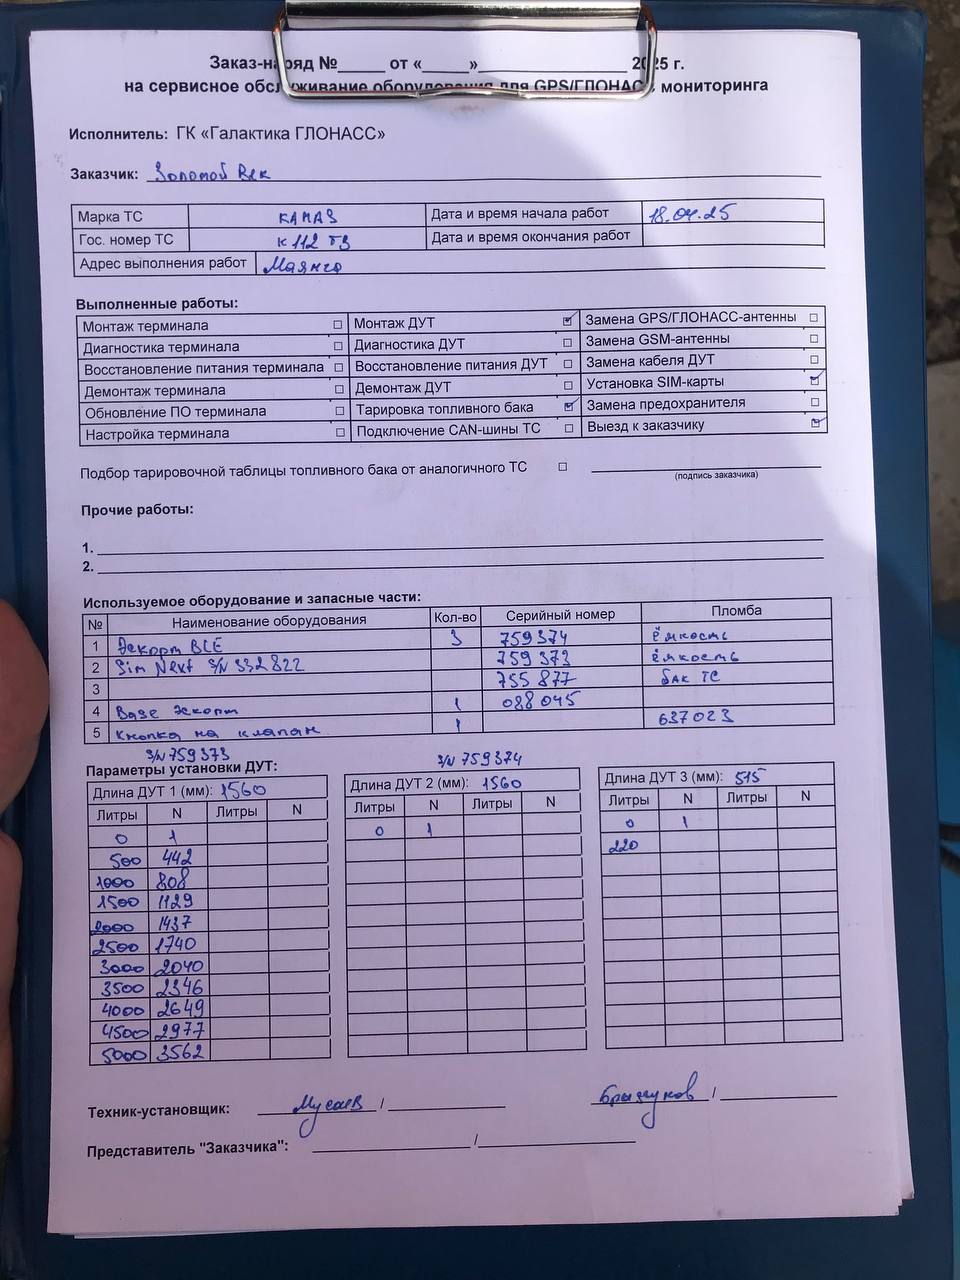 Заказ-наряд №_____ от «_____»________________ 2025 г.
на сервисное обслуживание оборудования для GPS/ГЛОНАСС мониторинга
Исполнитель: ГК «Галактика ГЛОНАСС»
Заказчик: Золотой Век
Марка ТС КАМАЗ Дата и время начала работ 18.04.25
Гос. номер ТС К 112 ТЗ Дата и время окончания работ
Адрес выполнения работ
Выполненные работы:
Монтаж терминала ☐ Монтаж ДУТ ☑ Замена GPS/ГЛОНАСС-антенны ☐
Диагностика терминала ☐ Диагностика ДУТ ☐ Замена GSM-антенны ☐
Восстановление питания терминала ☐ Восстановление питания ДУТ ☐ Замена кабеля ДУТ ☐
Демонтаж терминала ☐ Демонтаж ДУТ ☐ Установка SIM-карты ☑
Обновление ПО терминала ☐ Тарировка топливного бака ☑ Замена предохранителя ☐
Настройка терминала ☐ Подключение CAN-шины ТС ☐ Выезд к заказчику ☑
Подбор тарировочной таблицы топливного бака от аналогичного ТС ☐
(подпись заказчика)
Прочие работы:
1.
2.
Используемое оборудование и запасные части:
№ Наименование оборудования Кол-во Серийный номер Пломба
1 Эскорт BLE 3 759374 ёмкость
2 Sim Next S/N 332822 759373 ёмкость
3 755877 бак ТС
4 Base Эскорт 1 088045
5 Кнопка на клапан 1 637023
S/N 759373 S/N 759374
Параметры установки ДУТ:
Длина ДУТ 1 (мм): 1560 Длина ДУТ 2 (мм): 1560 Длина ДУТ 3 (мм): 515
Литры N Литры N Литры N Литры N Литры N Литры N
0 1 0 1 0 1
500 442 220
1000 808
1500 1129
2000 1437
2500 1740
3000 2040
3500 2346
4000 2649
4500 2977
5000 3562
Техник-установщик: Мусаев /
Представитель "Заказчика": /